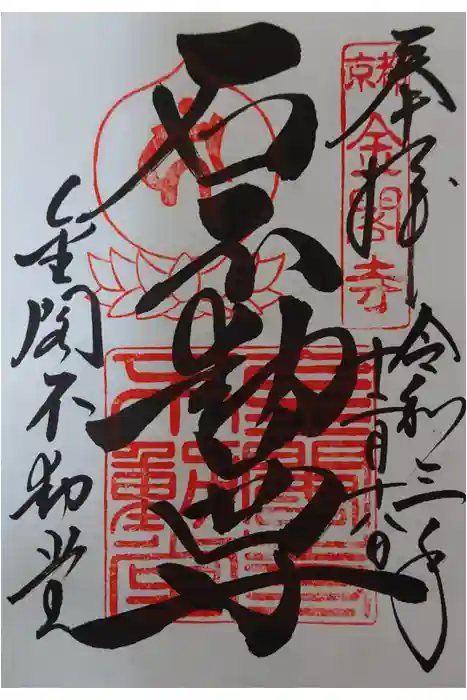 奉拝
京都
金閣寺
令和三年
十二月十八日
石不動尊
金閣不動堂